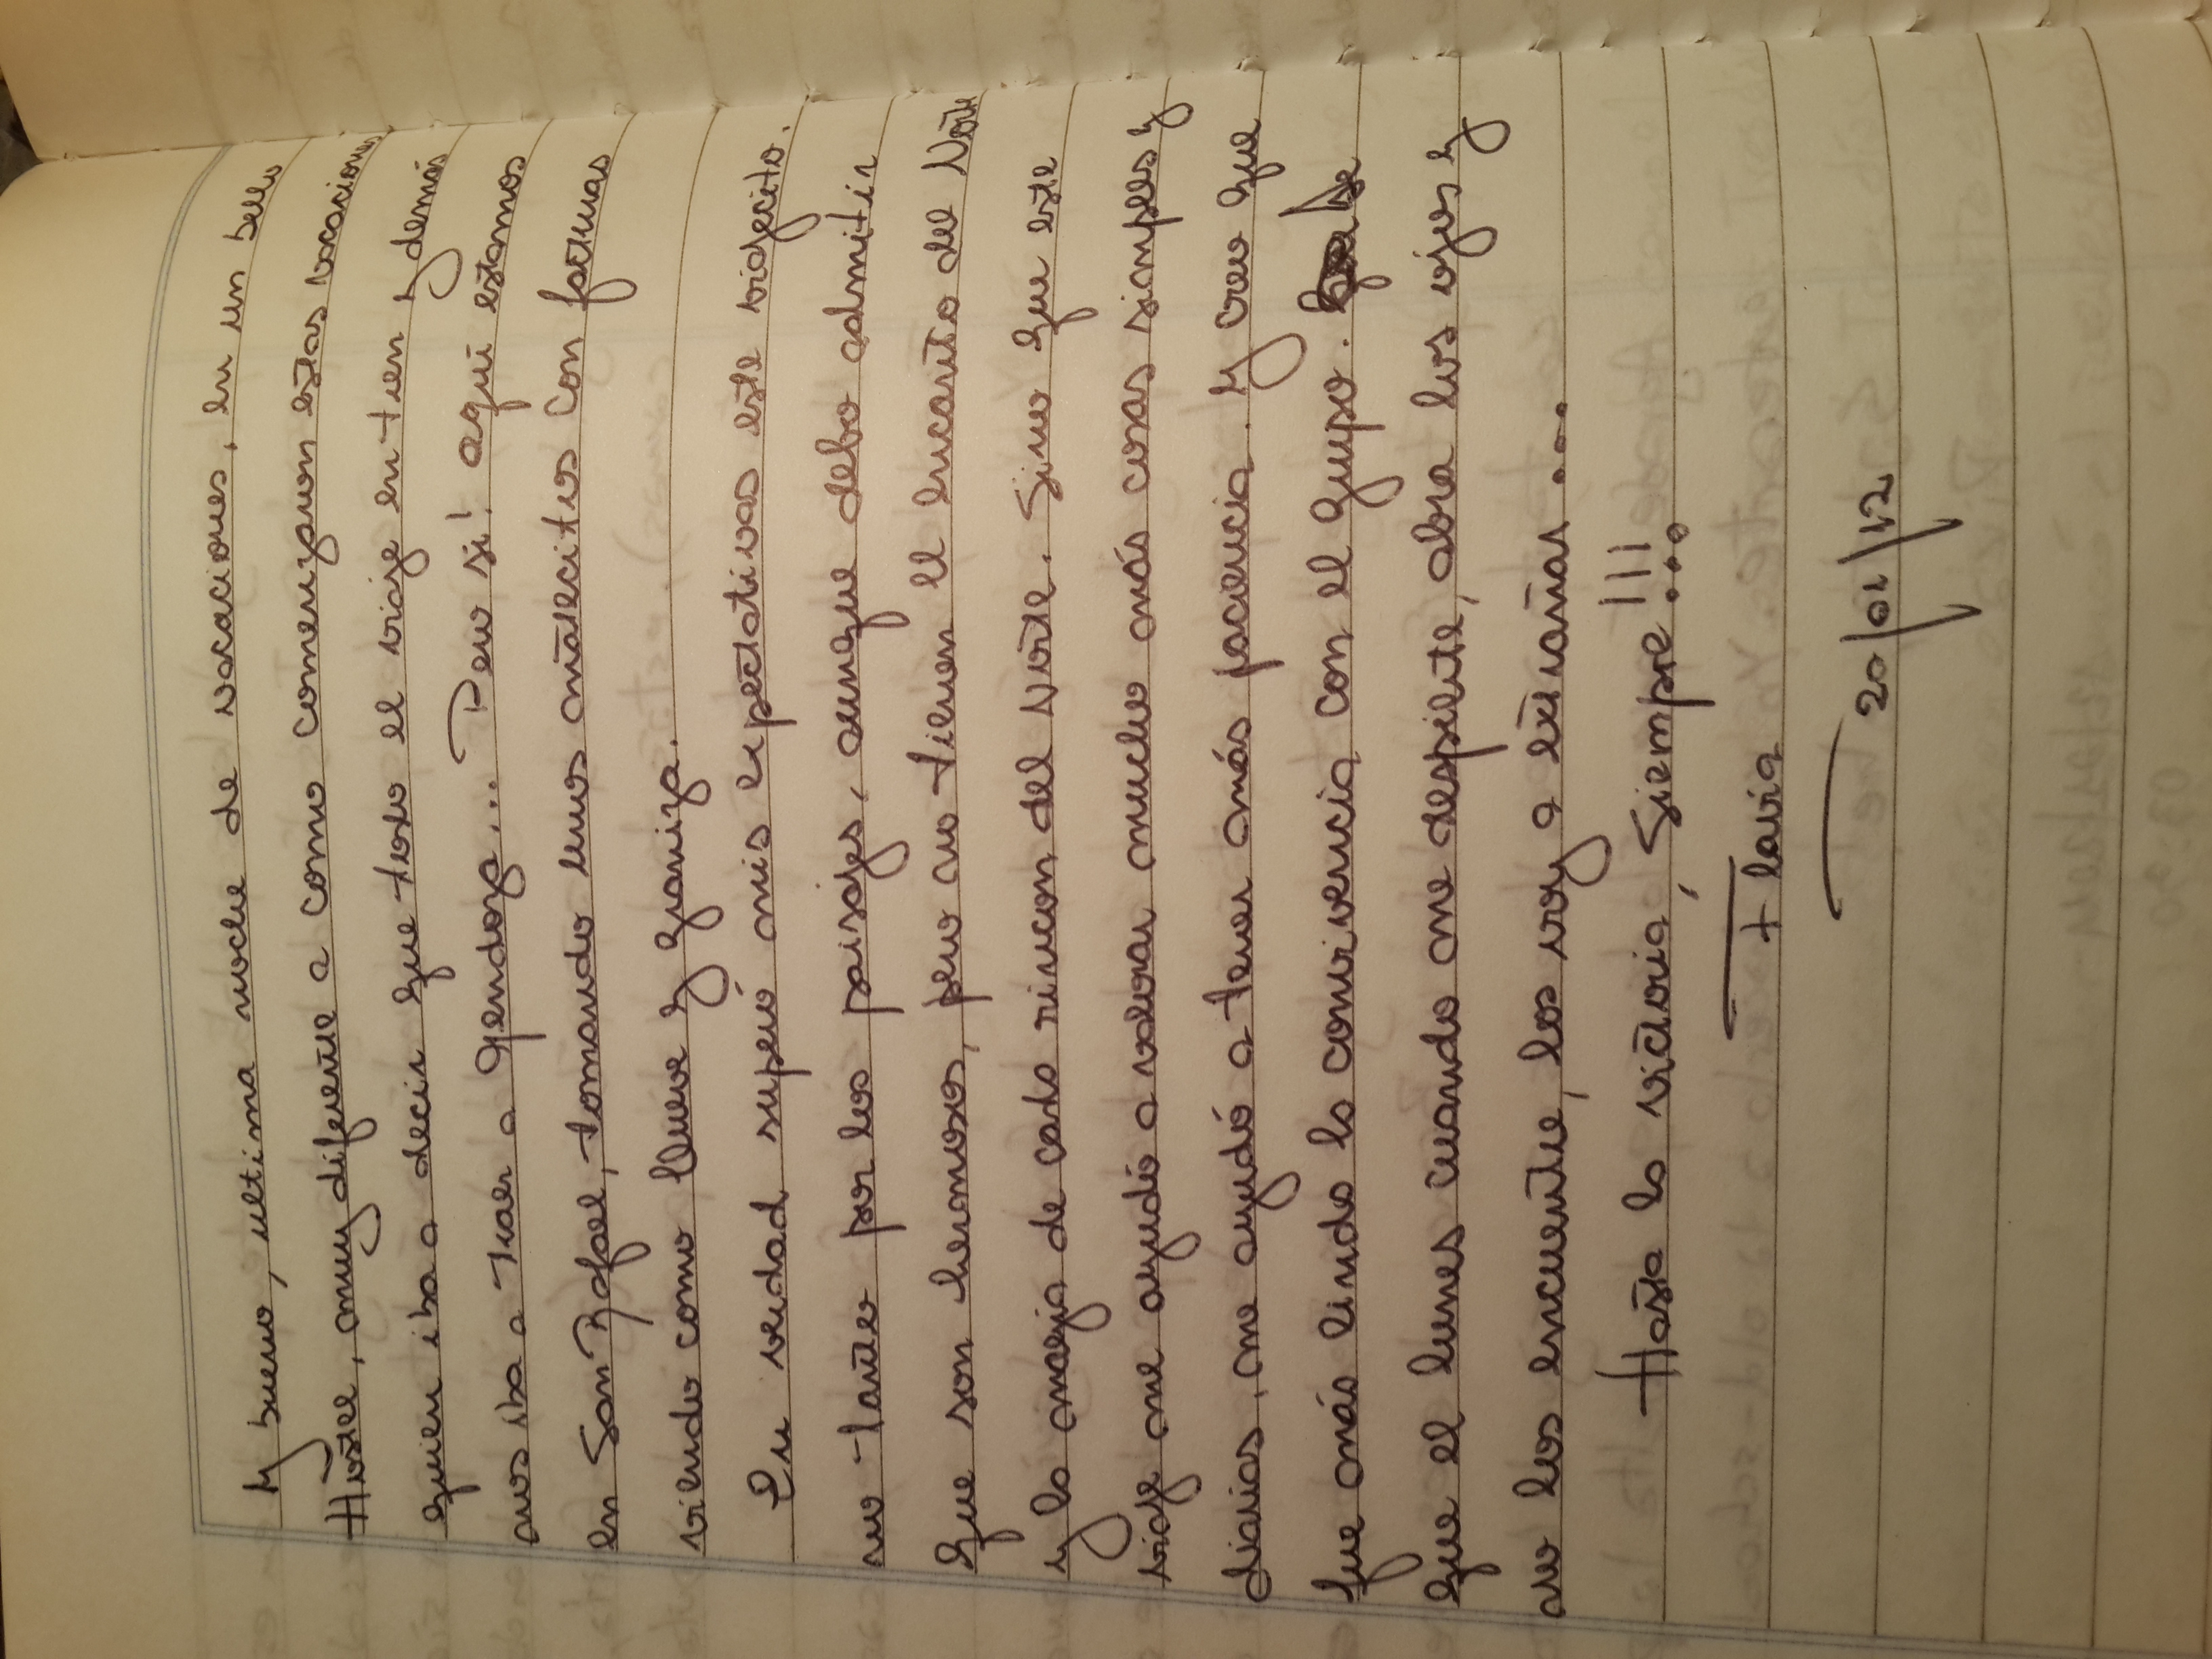 Y bueno, ultima noche de vacaciones, en un bello
Hostel, muy diferente a como comenzaron estas vacaciones
quien iba a decir que todo el viaje en tren y demás
nos iba a traer a Mendoza... Pero si! aquí estamos
en San Rafael, tomando unos matecitos con facturas
viendo como llueve y graniza.
En verdad superó mis expectativas este viajecito.
no tanto por los paisajes, aunque debo admitir
que son hermosos, pero no tienen el encanto del Norte
y la magia de cada rincon del Norte. Sino que este
viaje me ayudó a valorar mucho más cosas simples y
diarias, me ayudó a tener más paciencia. Y creo que
fue más linda la convivencia con el grupo. Se
que el lunes cuando me despierte, abra los ojos y
no los encuentre, los voy a extrañar...
Hasta la victoria, Siempre!!!
Flavia
20/01/12